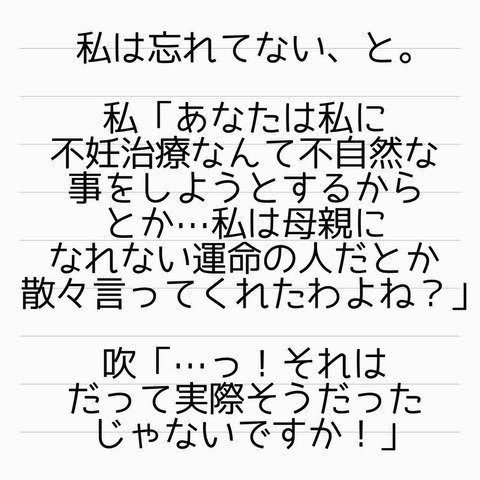 私は忘れてない、と。
私「あなたは私に
不妊治療なんて不自然な
事をしようとするから
とか…私は母親に
なれない運命の人だとか
散々言ってくれたわよね？」
吹「…っ！それは
だって実際そうだった
じゃないですか！」